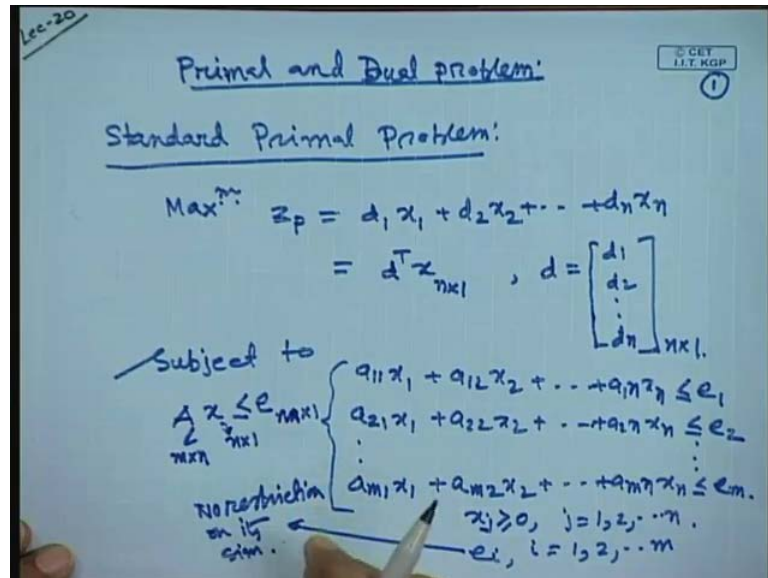 Lec-20
Primal and Dual problem:
© CET
I.I.T. KGP
1
Standard Primal Problem:
Max^m. Zp = d1 x1 + d2 x2 + -- + dn xn
= d^T x n×1 , d = [d1 d2 ⋮ dn] n×1.
Subject to
a11 x1 + a12 x2 + -- + a1n xn ≤ e1
A m×n x n×1 ≤ e m×1
a21 x1 + a22 x2 + -- + a2n xn ≤ e2
⋮ ⋮
am1 x1 + am2 x2 + -- + amn xn ≤ em.
xj ≥ 0, j = 1, 2, -- n.
No restriction
on its
sign.
ei, i = 1, 2, -- m